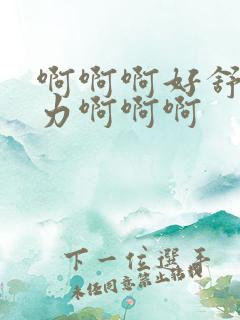 啊啊啊好舒
力啊啊啊
下一位選手
未经同意禁止转载